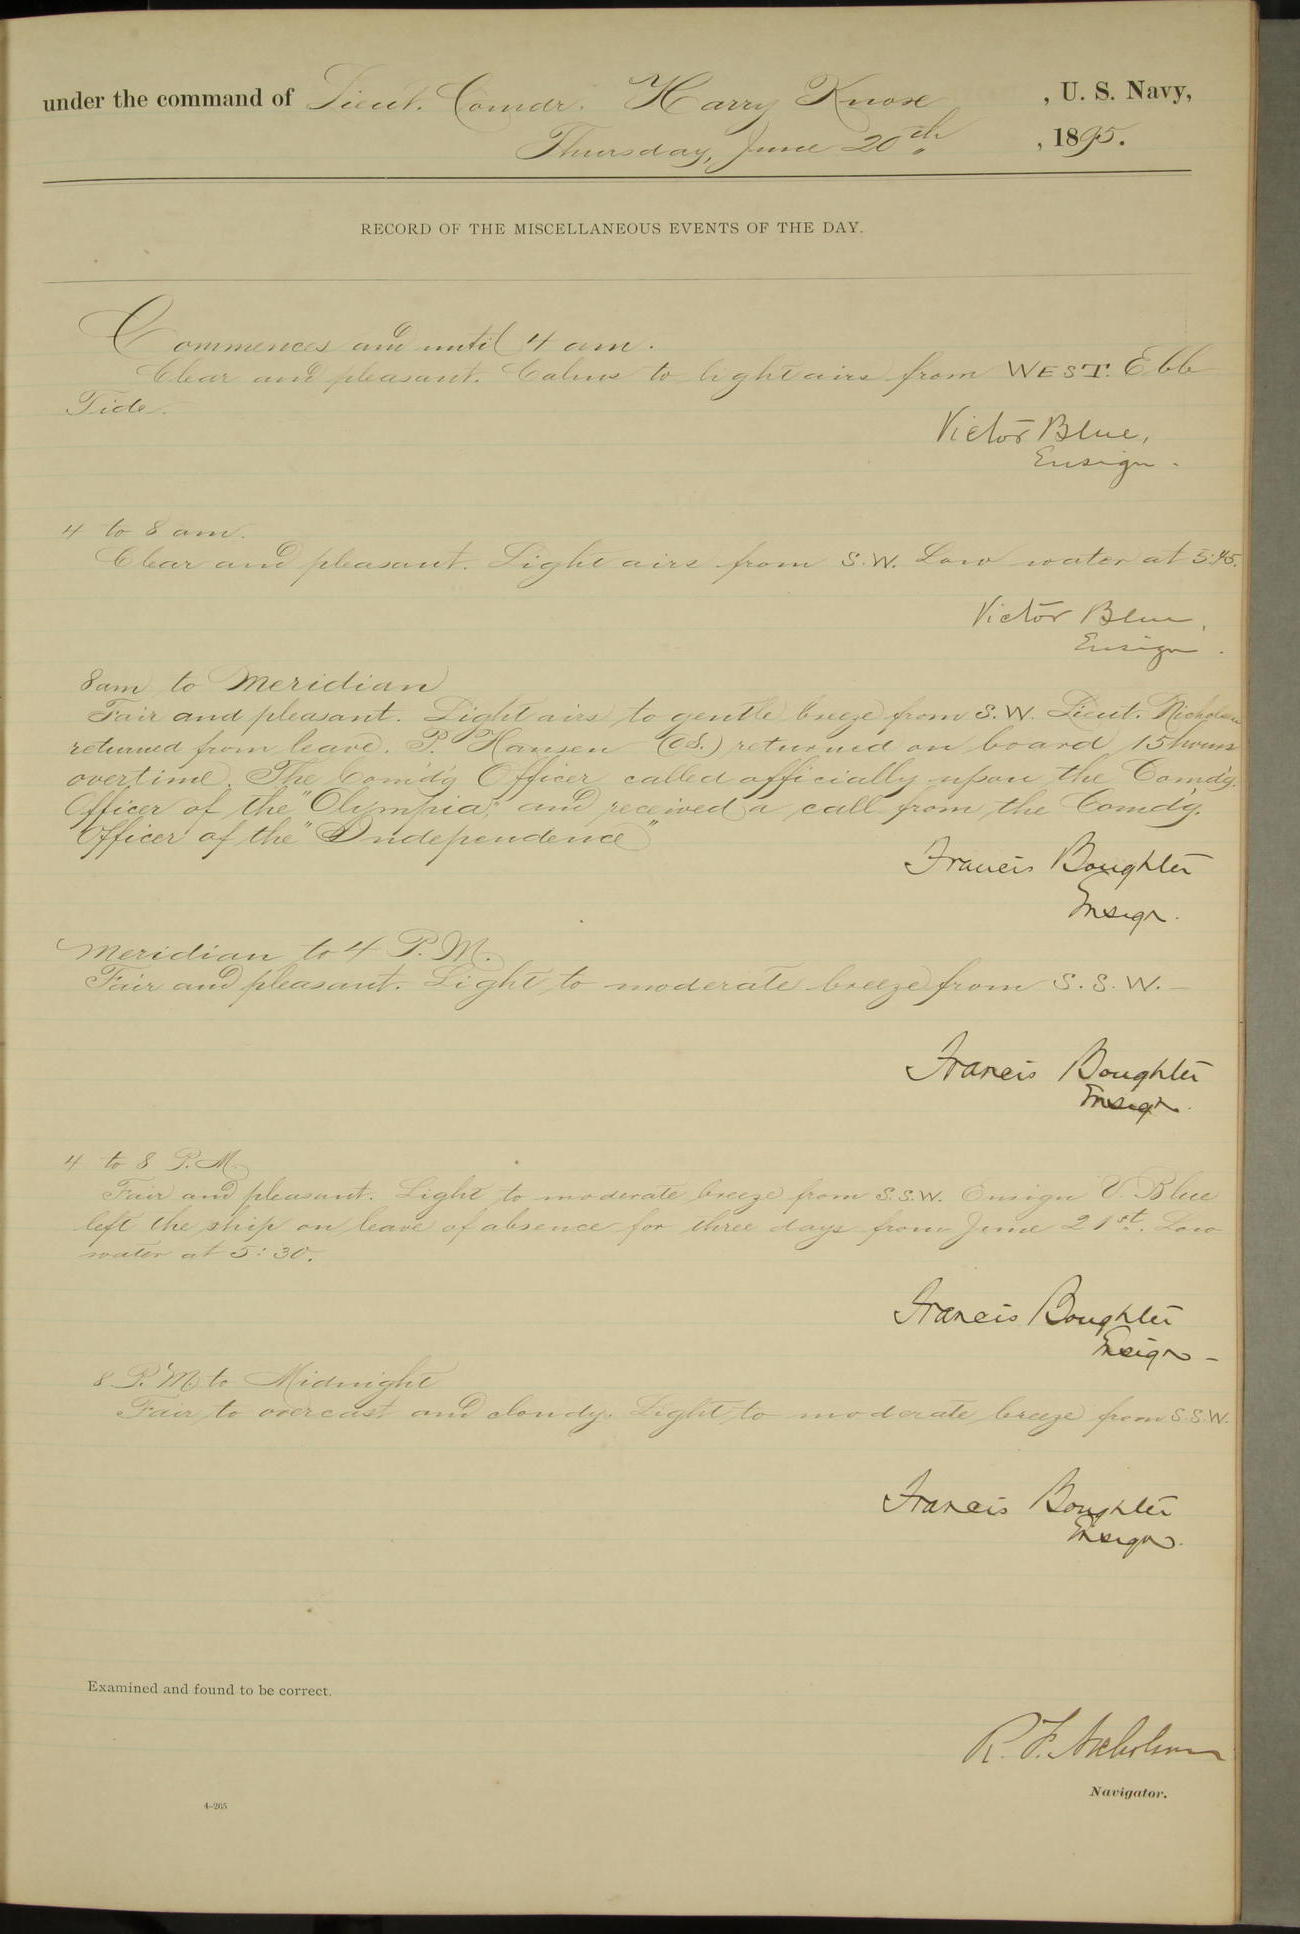 under the command of Lieut. Comdr. Harry Knox, U. S. Navy,
Thursday, June 20th, 1895.
RECORD OF THE MISCELLANEOUS EVENTS OF THE DAY.
Commences and until 4 am.
Clear and pleasant. Calms to light airs from WEST. Ebb
Tide.
Victor Blue,
Ensign.
4 to 8 am.
Clear and pleasant. Light airs from S.W. Low water at 5:45.
Victor Blue,
Ensign.
8 am to Meridian
Fair and pleasant. Light airs to gentle breeze from S.W. Lieut. Nicholson
returned from leave. P. Hansen (OS.) returned on board 15 hours
overtime. The Comd'g Officer called officially upon the Comdg.
Officer of the "Olympia," and received a call from the Comdg.
Officer of the "Independence"
Francis Boughter
Ensign.
Meridian to 4 P.M.
Fair and pleasant. Light to moderate breeze from S.S.W.—
Francis Boughter
Ensign.
4 to 8 P.M.
Fair and pleasant. Light to moderate breeze from S.S.W. Ensign V. Blue
left the ship on leave of absence for three days from June 21st. Low
water at 5:30.
Francis Boughter
Ensign—
8 P.M. to Midnight
Fair to overcast and cloudy. Light to moderate breeze from S.S.W.
Francis Boughter
Ensign.
Examined and found to be correct.
R. F. Nicholson
Navigator.
4–265